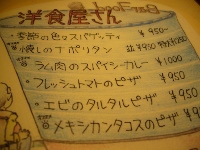 洋食屋さん
・季節の色々スパゲッティ ¥950-
焼しのナポリタン 並¥950 ¥1200
ラム肉のスパイシーカレー ¥1000
・フレッシュトマトのピザ ¥950
・エビのタルタルピザ ¥950
メキシカンタコスのピザ ¥950